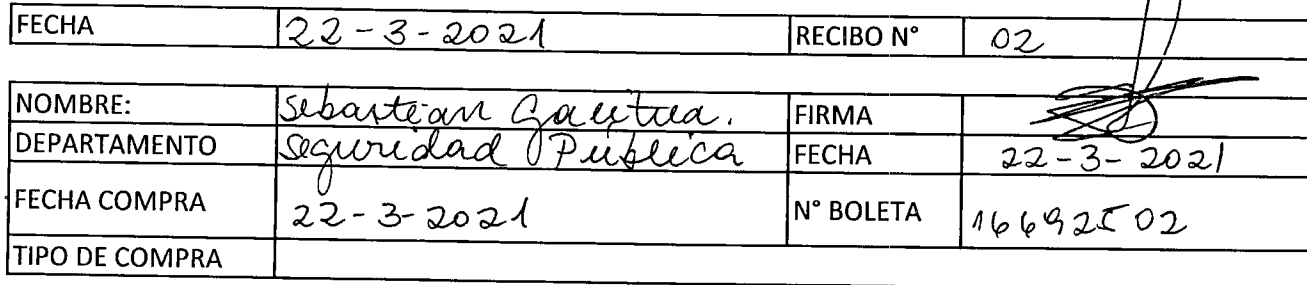 FECHA 22-3-2021 RECIBO N° 02
NOMBRE: Sebastian Gautua. FIRMA
DEPARTAMENTO Seguridad Pública FECHA 22-3-2021
FECHA COMPRA 22-3-2021 N° BOLETA 16692502
TIPO DE COMPRA